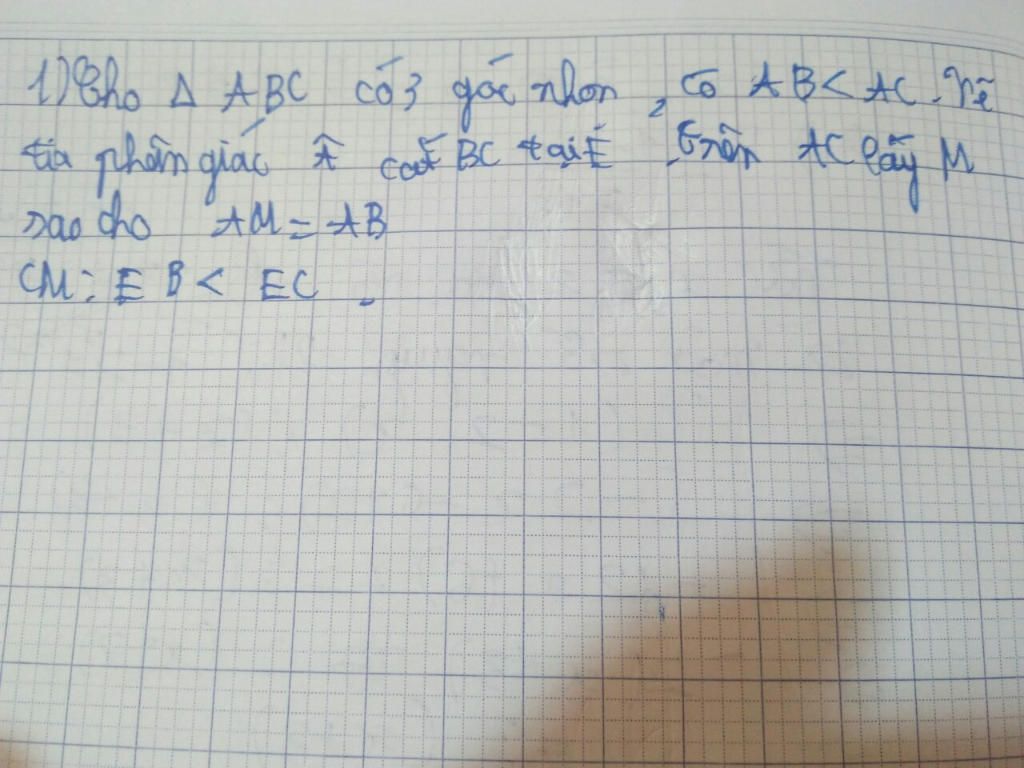 1) Cho Δ ABC có 3 góc nhọn, có AB < AC. Vẽ
tia phân giác Â cắt BC tại E, trên AC lấy M
sao cho AM = AB
CM: EB < EC.